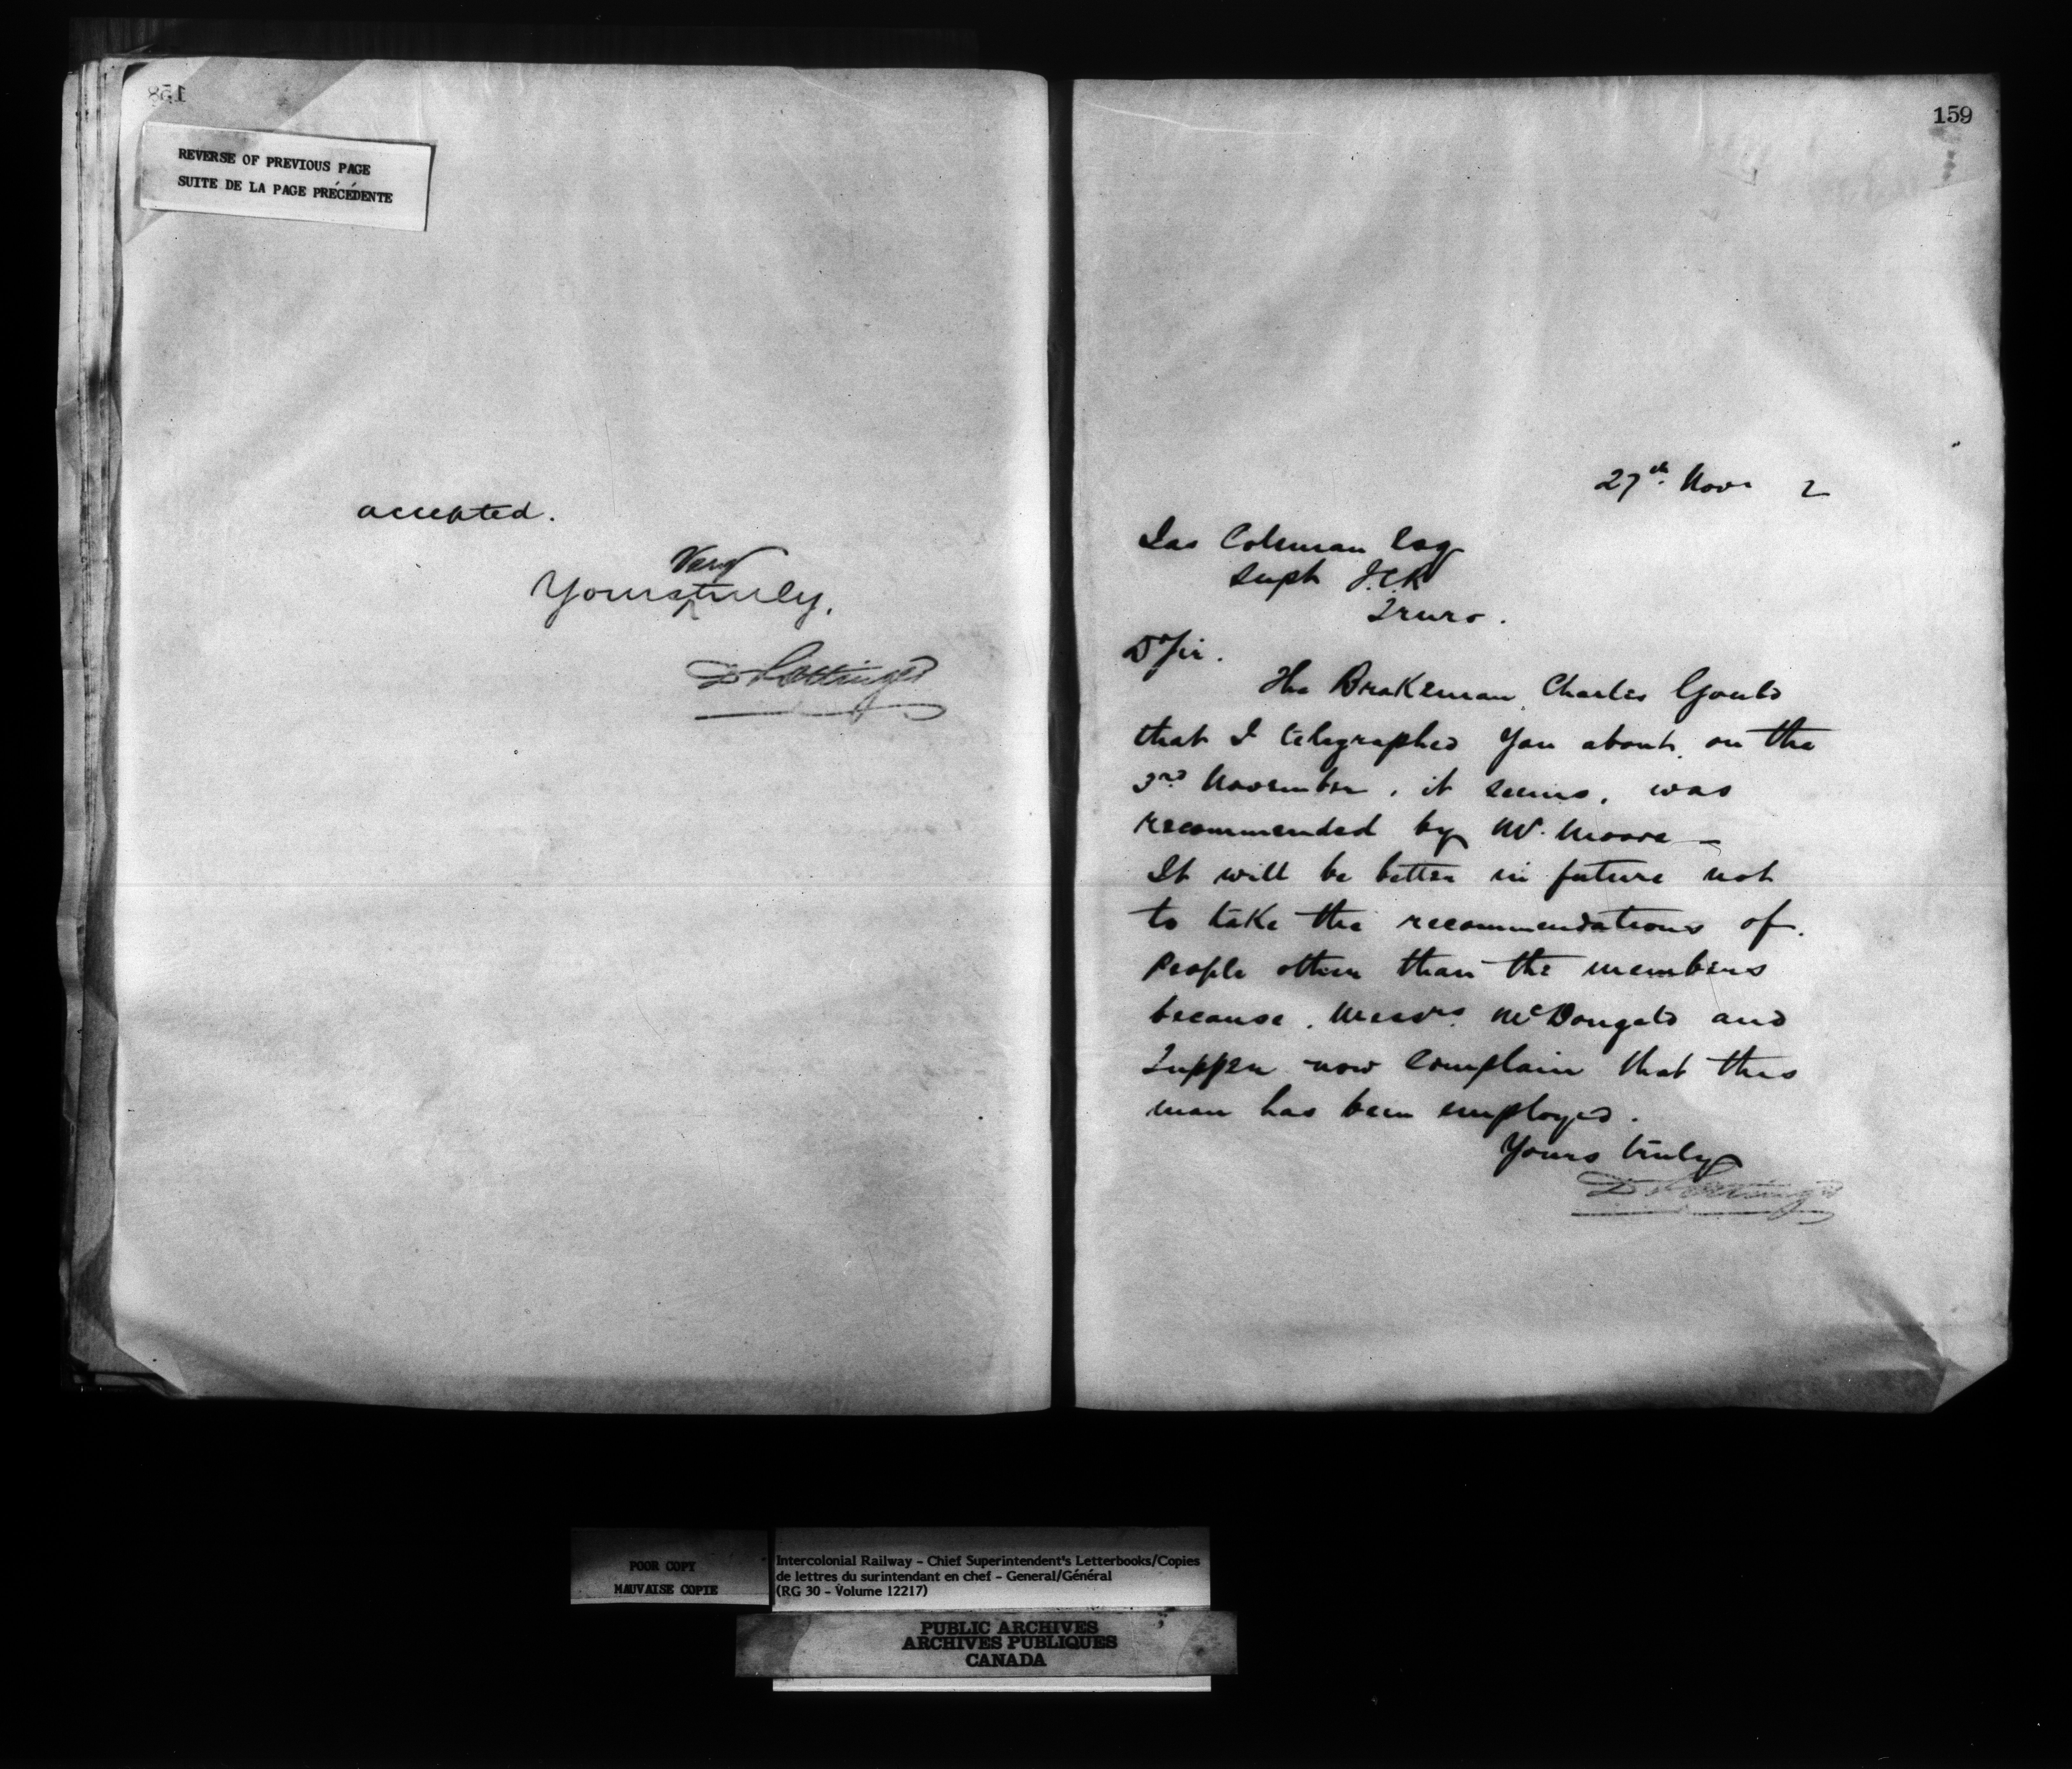 158
REVERSE OF PREVIOUS PAGE
SUITE DE LA PAGE PRÉCÉDENTE
accepted.
Very
Yours truly,
D Pottinger
159
27th. Nov. 2
Jas Coleman Esq
Supt I.C.R
Truro.
Dr Sir.
The Brakeman, Charles Gould
that I telegraphed you about, on the
3rd November, it seems, was
recommended by Mr. Moore —
It will be better in future not
to take the recommendations of
People other than the members
because, Messrs. McDougald and
Tupper now complain that this
man has been employed.
Yours truly
D Pottinger
POOR COPY
MAUVAISE COPIE
Intercolonial Railway - Chief Superintendent's Letterbooks/Copies
de lettres du surintendant en chef - General/Général
(RG 30 - Volume 12217)
PUBLIC ARCHIVES
ARCHIVES PUBLIQUES
CANADA